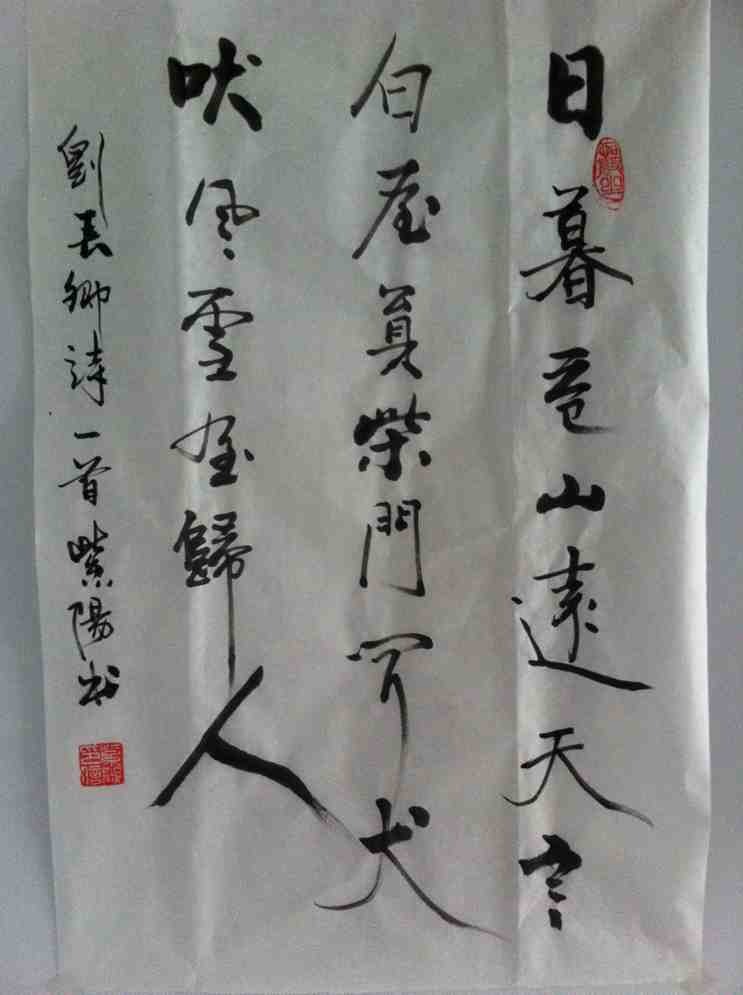 日暮蒼山遠天寒
白屋貧柴門聞犬
吠風雪夜歸人
劉長卿詩一首紫陽书